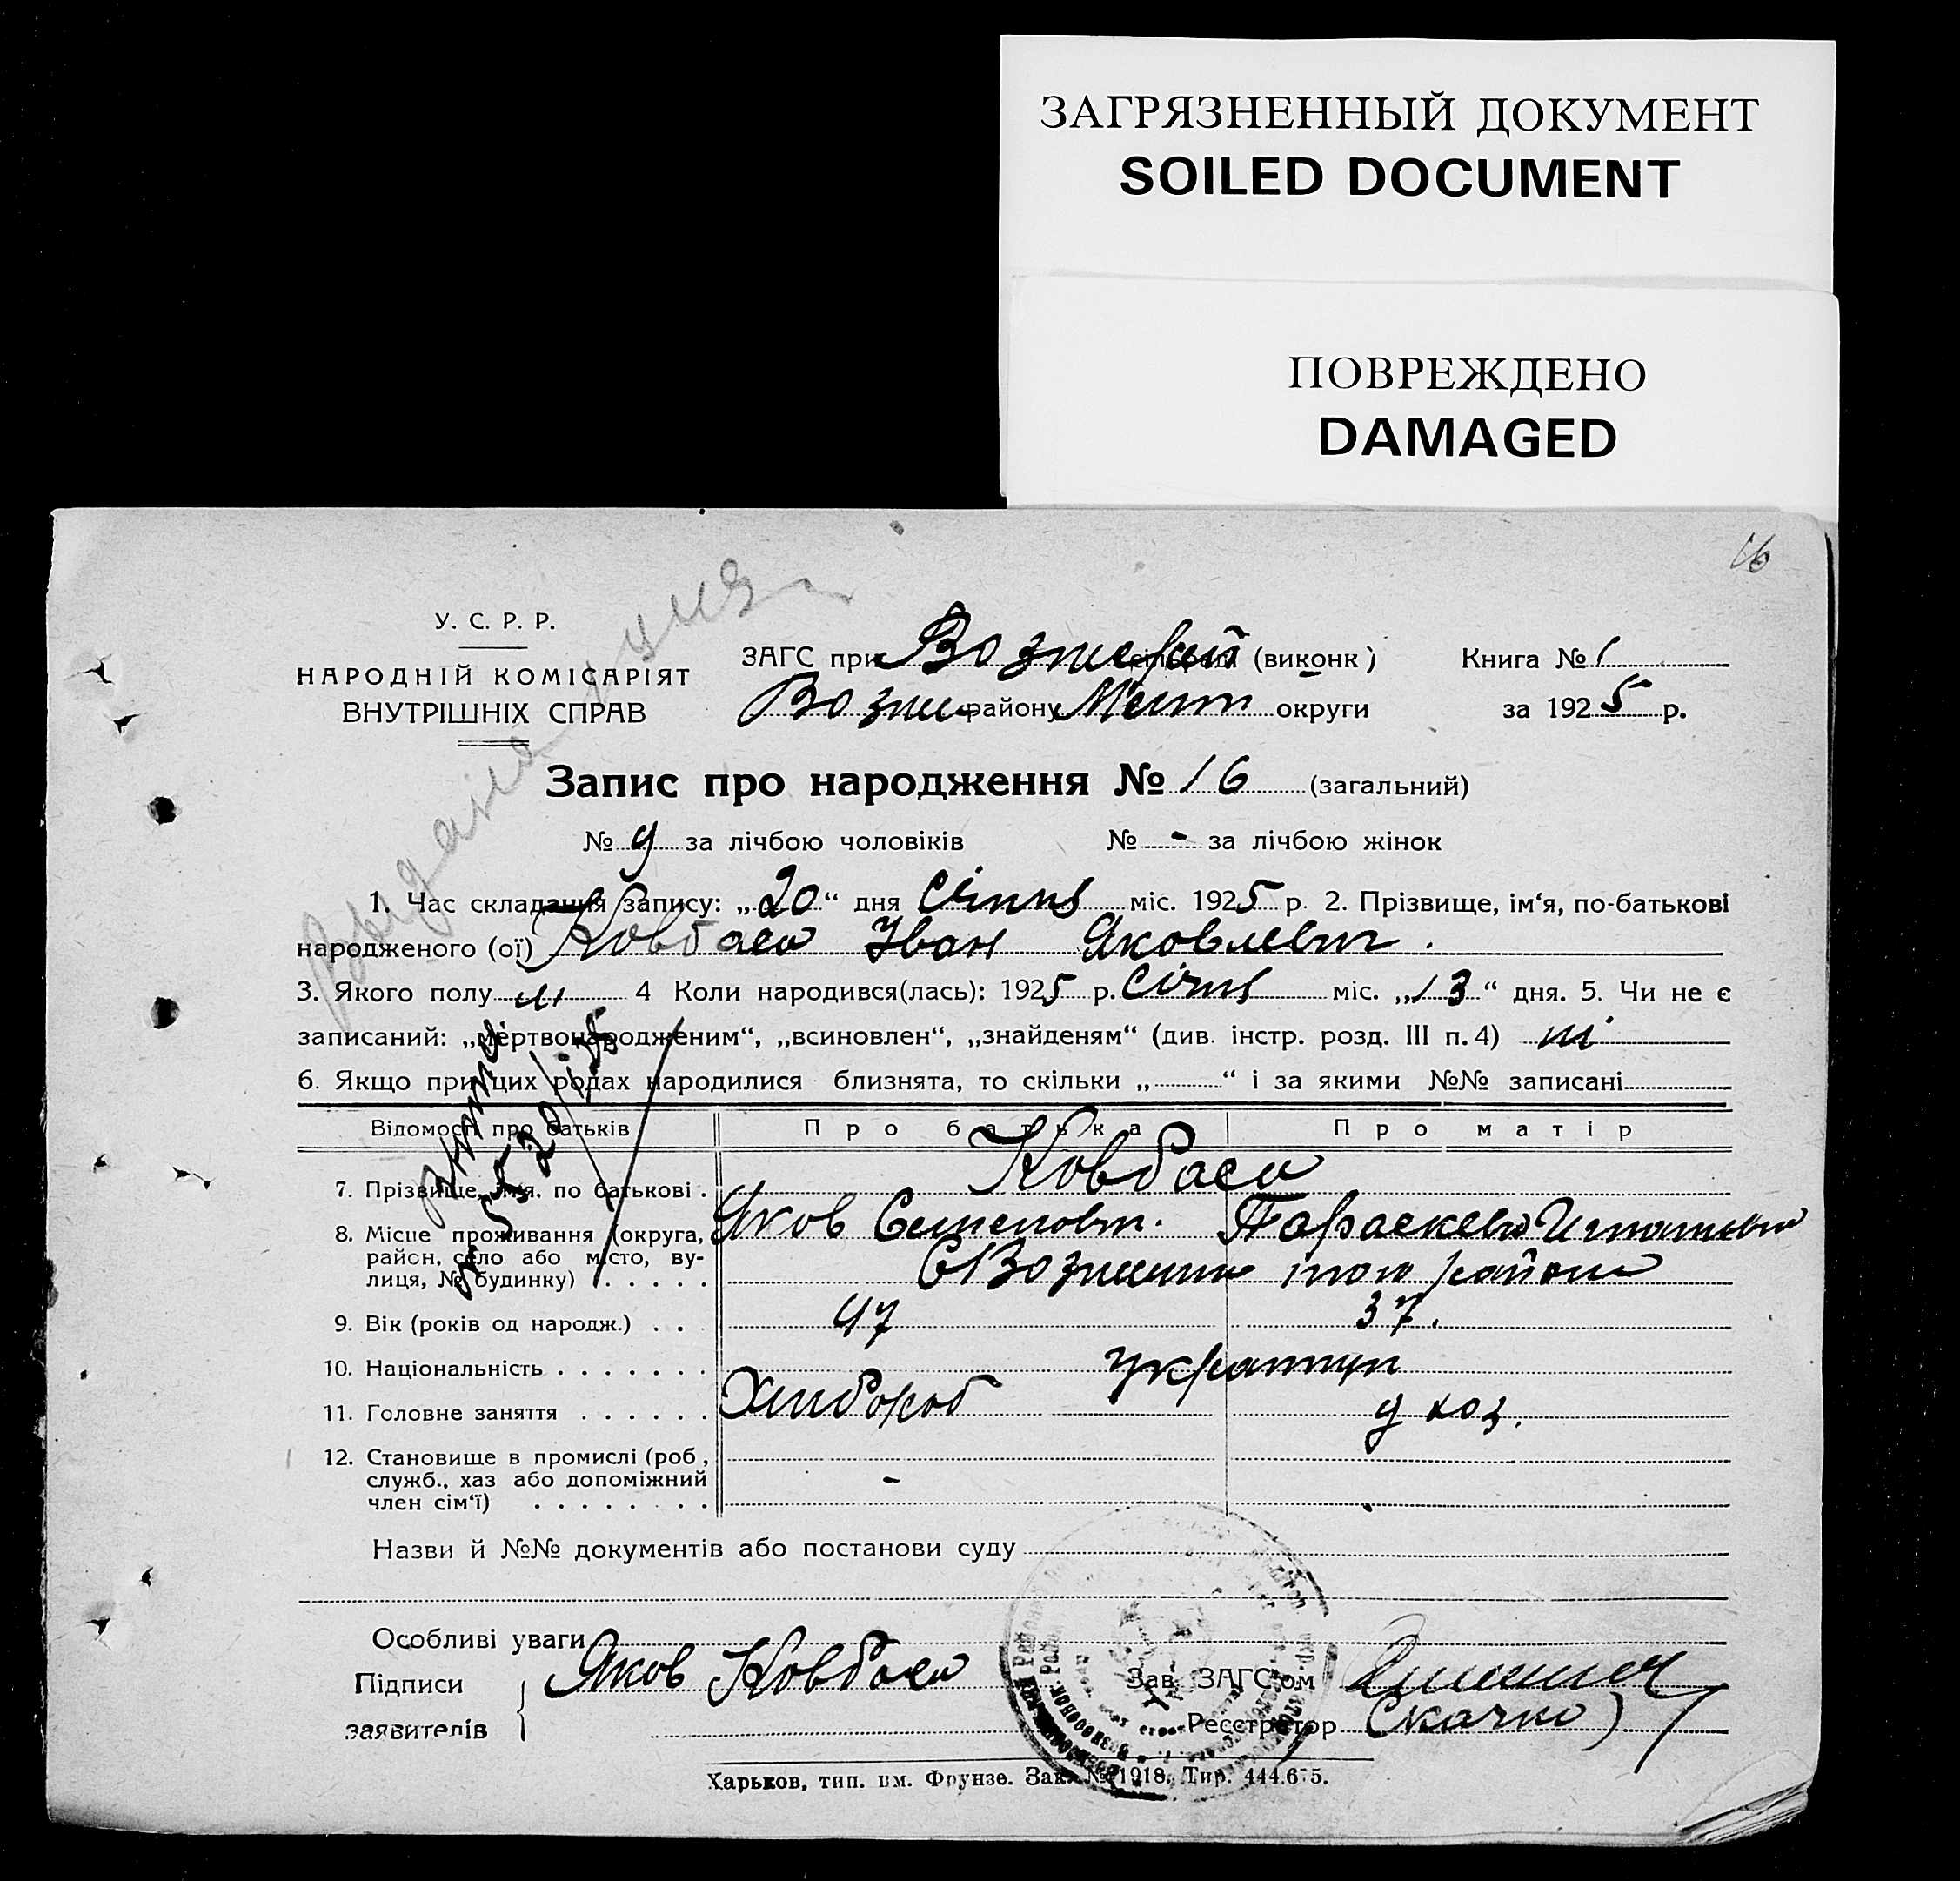 ЗАГРЯЗНЕННЫЙ ДОКУМЕНТ
SOILED DOCUMENT
ПОВРЕЖДЕНО
DAMAGED
16
У. С. Р. Р.
НАРОДНІЙ КОМІСАРІЯТ
ВНУТРІШНІХ СПРАВ
ЗАГС при (виконк) Книга № 1
Возне району округи за 1925 р.
Запис про народження № 16 (загальний)
№ 9 за лічбою чоловіків № - за лічбою жінок
1. Час складання запису: „20“ дня Січня міс. 1925 р. 2. Прізвище, ім‘я, по-батькові
народженого (ої) Ковбаса Іван Яковлевич.
3. Якого полу м 4 Коли народився(лась): 1925 р. Січня міс. „13“ дня. 5. Чи не є
записаний: „мертвонародженим“, „всиновлен“, „знайденям“ (див. інстр. розд. III п. 4) ні
6. Якщо при цих родах народилися близнята, то скільки „ “ і за якими №№ записані
Відомості про батьків Про батька Про матір
Ковбаса
7. Прізвище, ім‘я. по батькові .
Яков Семенович. Параскева
8. Місце проживання (округа,
район, село або місто, ву-
лиця, № будинку) . . . . .
того района
9. Вік (років од народж.) . . 47 37.
10. Національність . . . . . . .
11. Головне заняття . . . . . . Хлібороб д хоз.
12. Становище в промислі (роб,
служб., хаз або допоміжний
член сім‘ї) . . . . . . . . -
Назви й №№ документів або постанови суду
Особливі уваги
Підписи
заявителів
Яков Ковбаса
Зав. ЗАГС‘ом
Реєстратор (Скачко)
Харьков, тип. им. Фрунзе. Зак. № 1918. Тир. 444.675.